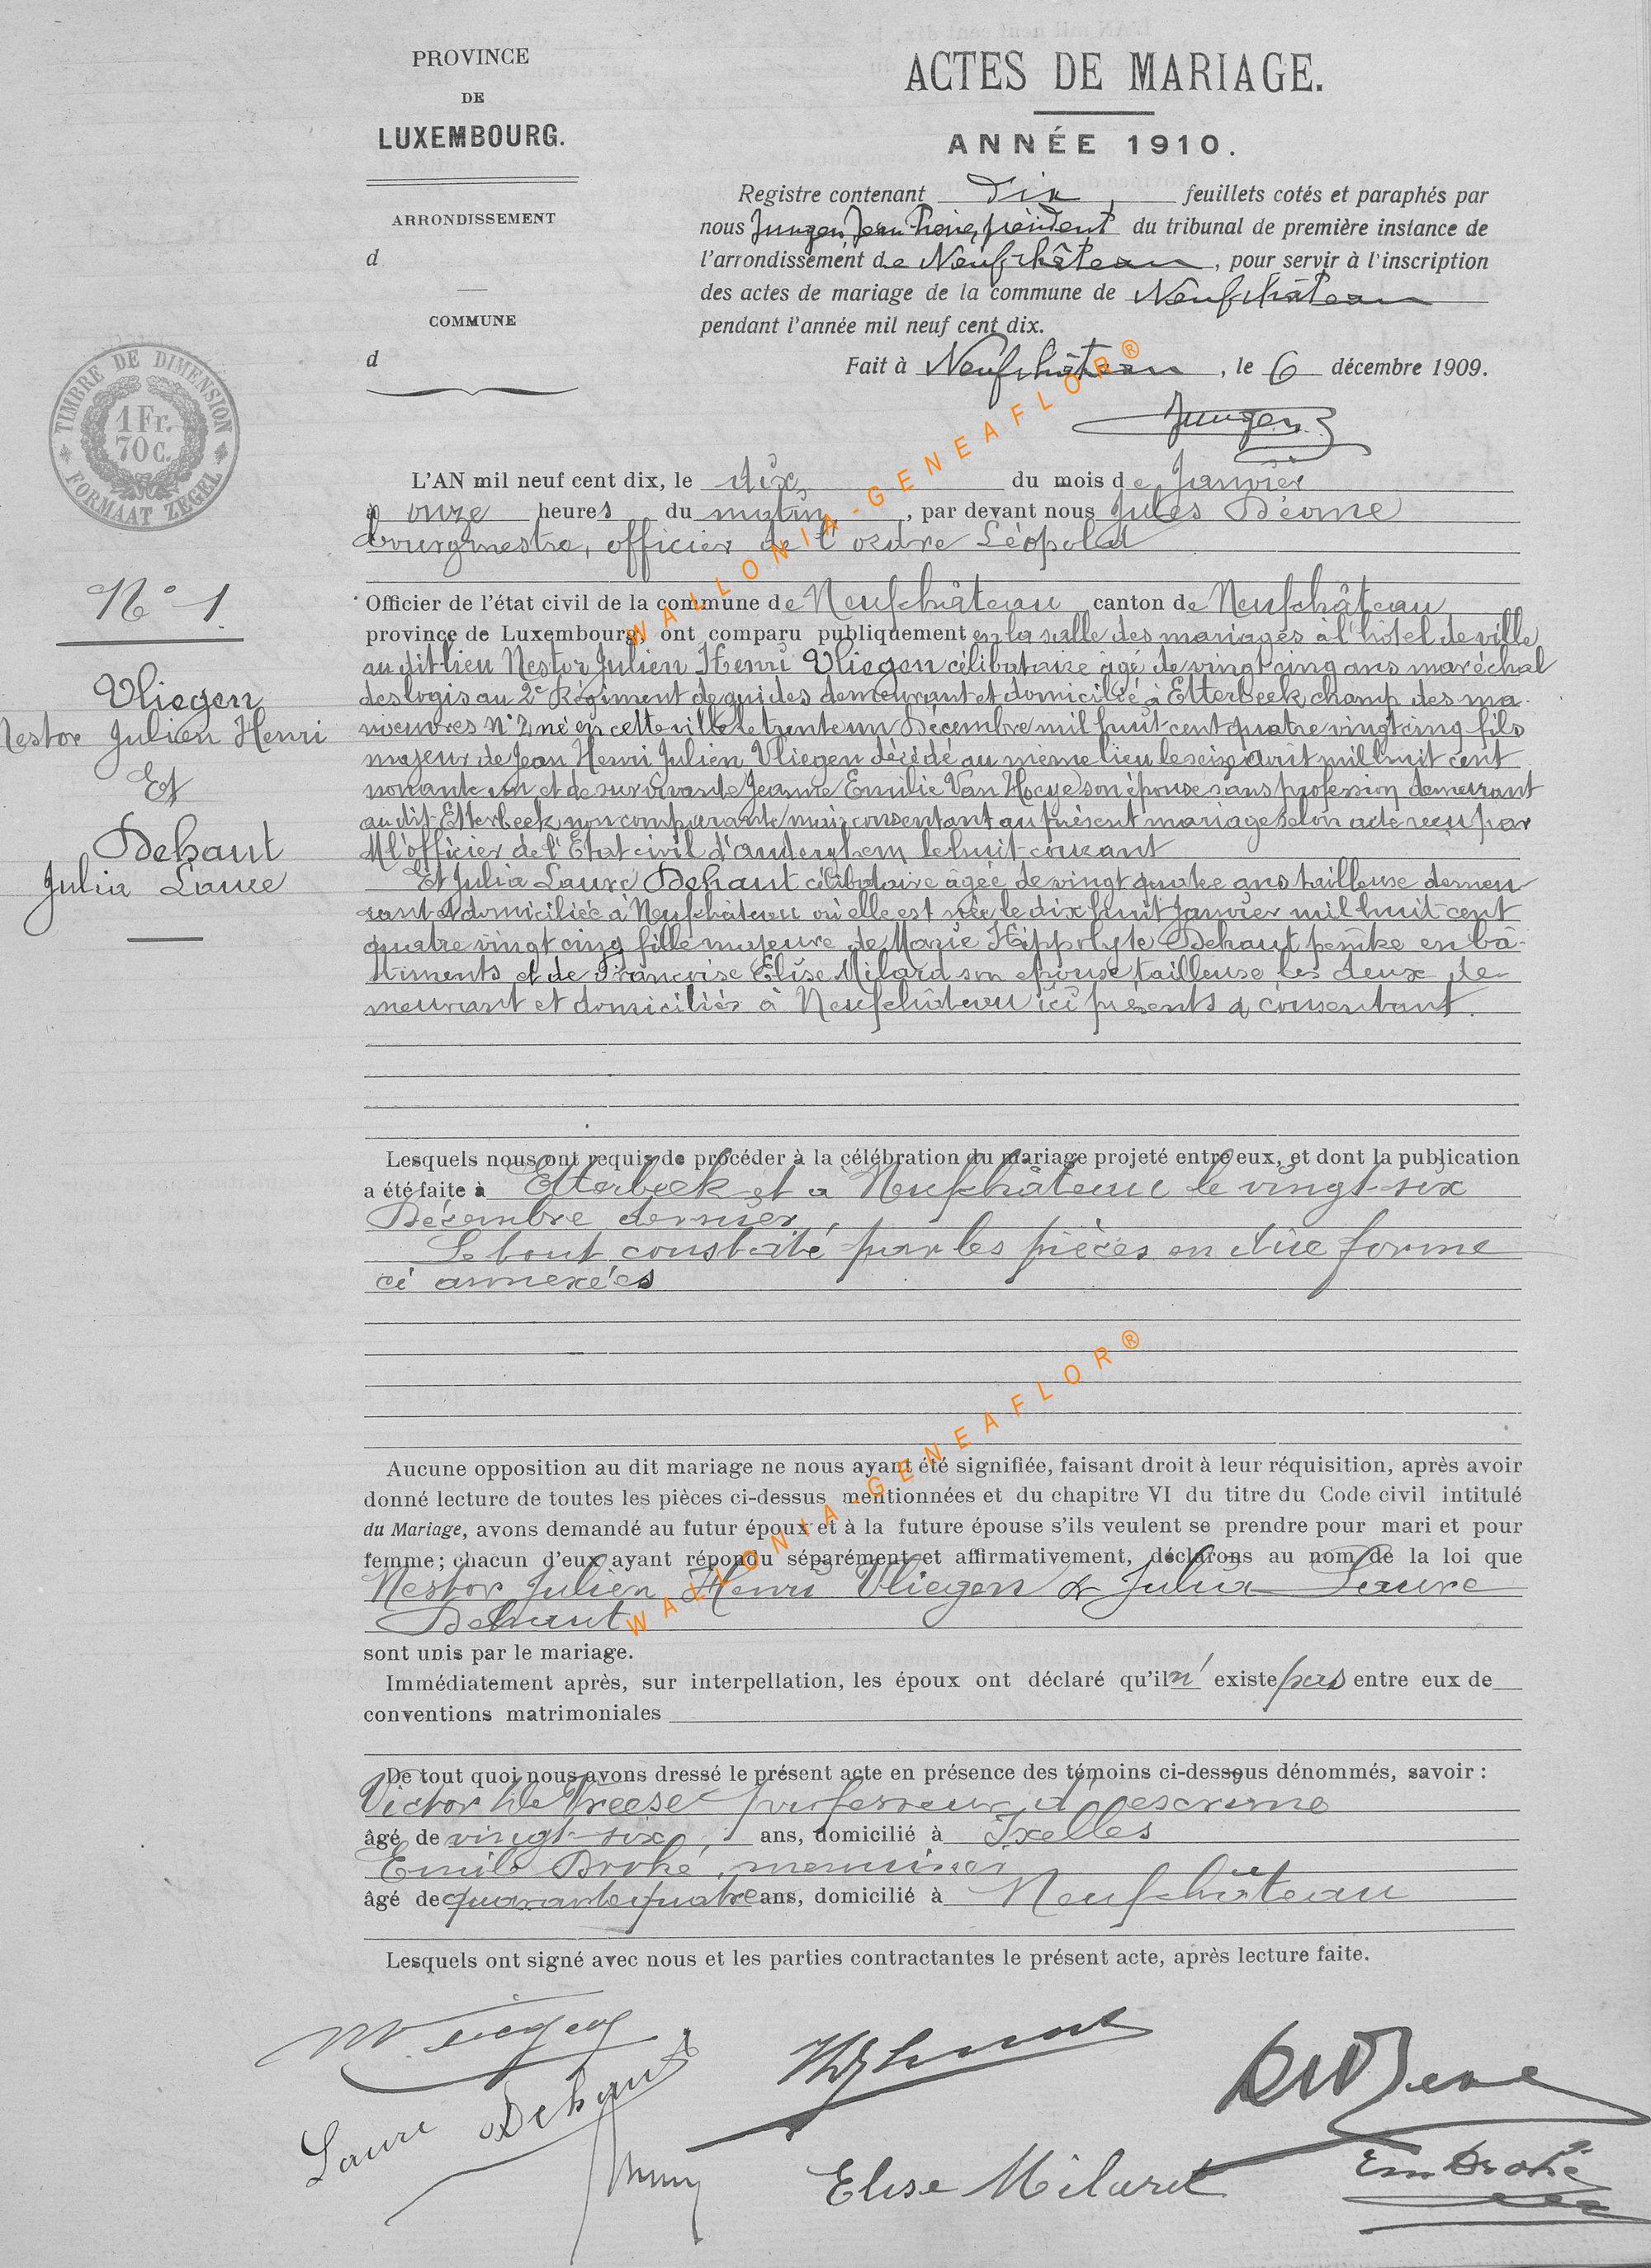 PROVINCE
DE
LUXEMBOURG.
ARRONDISSEMENT
d
COMMUNE
d
TIMBRE DE DIMENSION
1 Fr.
70 c.
FORMAAT ZEGEL
ACTES DE MARIAGE.
ANNÉE 1910.
Registre contenant dix feuillets cotés et paraphés par
nous Jungers, Jean Pierre, président du tribunal de première instance de
l'arrondissement de Neufchâteau, pour servir à l'inscription
des actes de mariage de la commune de Neufchâteau
pendant l'année mil neuf cent dix.
Fait à Neufchâteau, le 6 décembre 1909.
Jungers
L'AN mil neuf cent dix, le dix du mois de Janvier
à onze heures du matin, par devant nous Jules Déome
bourgmestre, officier de l'ordre Léopold
Officier de l'état civil de la commune de Neufchâteau canton de Neufchâteau
province de Luxembourg, ont comparu publiquement en la salle des mariages à l'hôtel de ville
au dit lieu Nestor Julien Henri Vliegen célibataire âgé de vingt cinq ans maréchal
des logis au 2e Régiment de guides demeurant et domicilié à Etterbeek, champ des ma-
nœuvres N° 2, né en cette ville le trente un Décembre mil huit cent quatre vingt cinq fils
majeur de Jean Henri Julien Vliegen décédé au même lieu le six Août mil huit cent
nonante un et de survivante Jeanne Emilie Van Hoeye son épouse sans profession demeurant
au dit Etterbeek non comparante mais consentant au présent mariage selon acte reçu par
M l'officier de l'Etat civil d'Auderghem le huit courant
Et Julia Laure Dehaut célibataire âgée de vingt quatre ans tailleuse demeu
rant et domiciliée à Neufchâteau où elle est née le dix huit Janvier mil huit cent
quatre vingt cinq fille majeure de Marie Hippolyte Dehaut peintre en bâ-
timents et de Françoise Elise Milard son épouse, tailleuse les deux de
meurant et domiciliés à Neufchâteau ici présents & consentant.
N° 1.
Vliegen
Nestor Julien Henri
Et
Dehaut
Julia Laure
Lesquels nous ont requis de procéder à la célébration du mariage projeté entre eux, et dont la publication
a été faite à Etterbeek et à Neufchâteau le vingt-six
Décembre dernier
Le tout constaté par les pièces en due forme
ci annexées
Aucune opposition au dit mariage ne nous ayant été signifiée, faisant droit à leur réquisition, après avoir
donné lecture de toutes les pièces ci-dessus mentionnées et du chapitre VI du titre du Code civil intitulé
du Mariage, avons demandé au futur époux et à la future épouse s'ils veulent se prendre pour mari et pour
femme; chacun d'eux ayant répondu séparément et affirmativement, déclarons au nom de la loi que
Nestor Julien Henri Vliegen & Julia Laure
Dehaut
sont unis par le mariage.
Immédiatement après, sur interpellation, les époux ont déclaré qu'il n' existe pas entre eux de
conventions matrimoniales
De tout quoi nous avons dressé le présent acte en présence des témoins ci-dessous dénommés, savoir :
Victor De Vreese professeur d'escrime
âgé de vingt-six ans, domicilié à Ixelles
Emile Drohé, menuisier
âgé de quarante quatre ans, domicilié à Neufchâteau
Lesquels ont signé avec nous et les parties contractantes le présent acte, après lecture faite.
Laure Dehaut
Elise Milard
Em Drohé
WALLONIA-GENEAFLOR®
WALLONIA-GENEAFLOR®